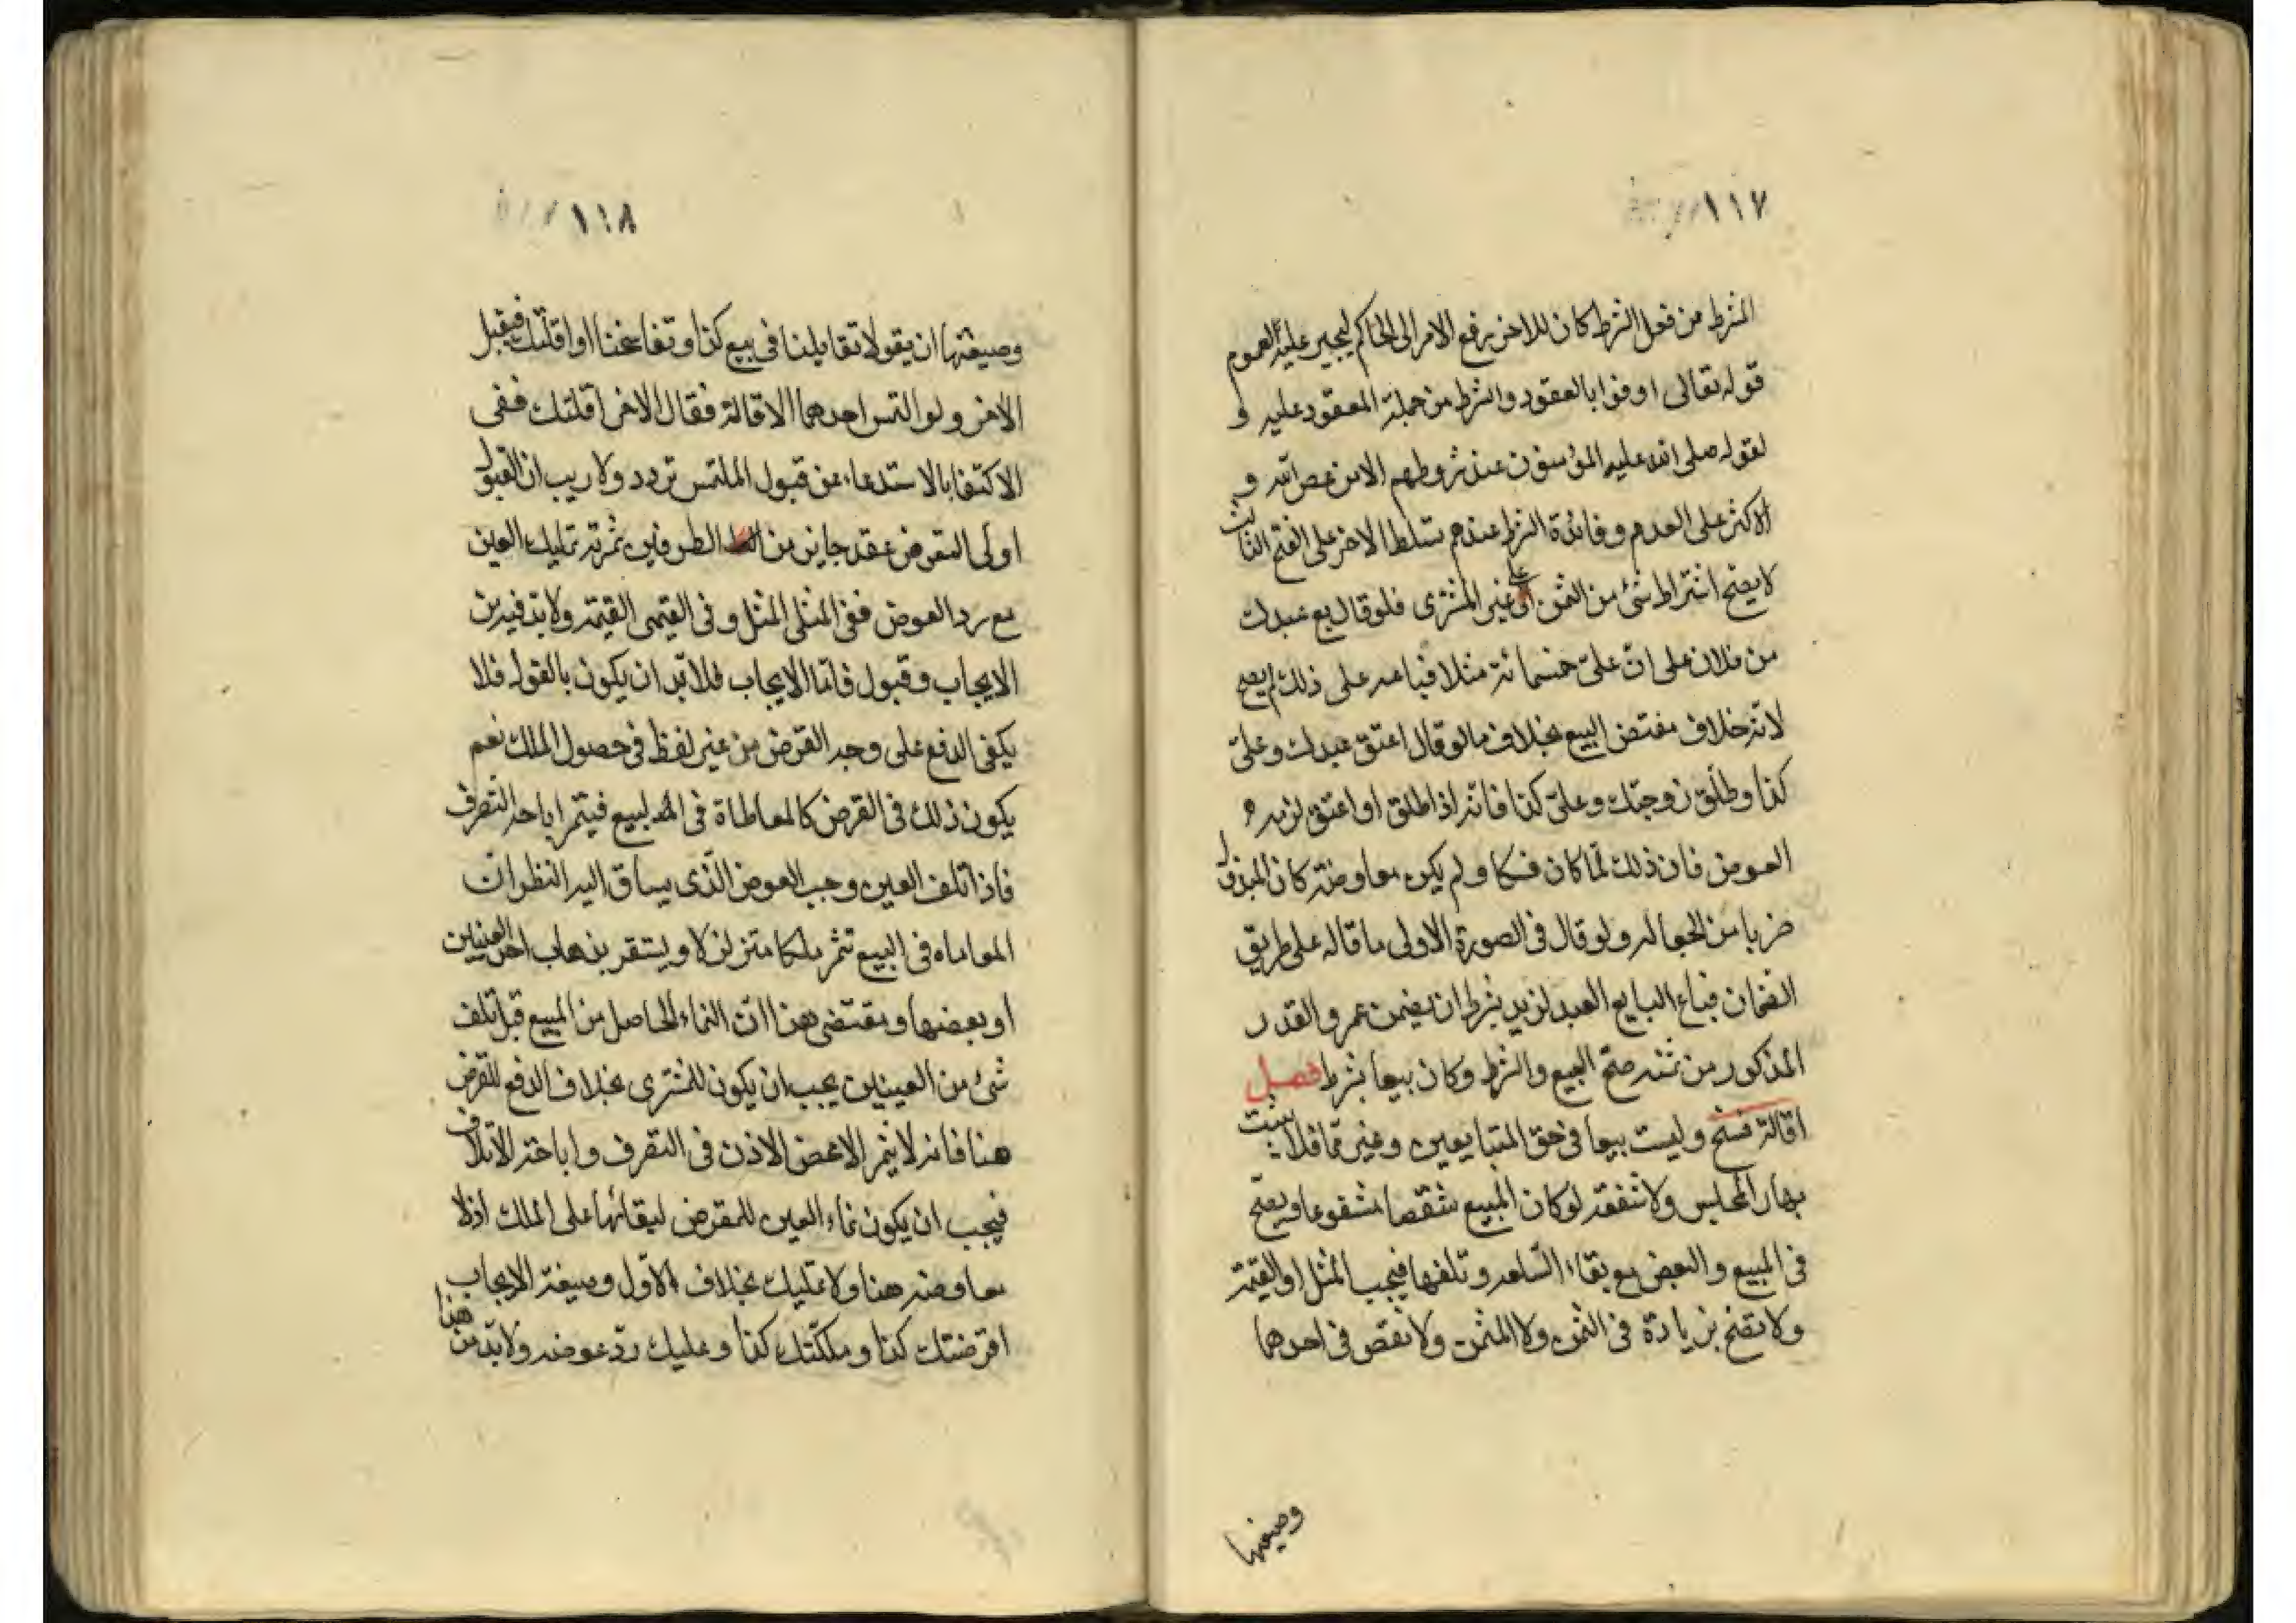 ١١٧
المشرط من فعل الشرط كان للاخر يرفع الامر الى الحاكم ليجبر عليه لعموم
قوله تعالى اوفوا بالعقود والشرط من جملة المعقود عليه و
لقوله صلى الله عليه المؤمنون عند شروطهم الا من عصى الله و
الاكثر على العدم وفائدة الشرط عندهم تسلط الاخر على الفسخ الثالث
لا يصح اشتراط شئ من الثمن على غير المشترى فلو قال بع عبدك
من فلان على ان علىّ خمسمائة مثلا فباعه على ذلك لم يصح
لانه خلاف مقتضى البيع بخلاف ما لو قال اعتق عبدك وعلىّ
كذا وطلّق زوجتك وعلىّ كذا فانه اذا طلق او اعتق لزمه
العوض فان ذلك لمّا كان فكا ولم يكن معاوضة كان المبذول
ضربا من الجعاله ولو قال فى الصورة الاولى ما قاله على طريق
الضمان فباع البايع العبد لزيد بشرط ان يضمن عمرو القدر
المذكور من ثمنه صحّ البيع والشرط وكان بيعا بشرط فصل
اقالة فسخ وليست بيعا فى حق المتبايعين وغيرهما فلا يثبت
بها المجلس ولا شفعة لو كان المبيع شقصا مشفوعا ويصح
فى المبيع والبعض مع بقاء السّلعه وتلفها فيجب المثل او القيمة
ولا تصح بزيادة فى الثمن ولا المثمن ولا نقص فى احدهما
وصيغتها
١١٨
وصيغتها ان يقولا تقايلنا فى بيع كذا وتفاسخنا او اقلتك فيقبل
الاخر ولو التمس احدهما الاقالة فقال الاخر اقلتك ففى
الاكتفا بالاستدعاء عن قبول الملتمس تردد ولا ريب ان القبول
اولى القرض عقد جايز من الطرفين ثمرته تمليك العين
مع رد العوض ففى المثلى المثل وفى القيمى القيمة ولا بد فيه من
الايجاب وقبول فامّا الايجاب فلا بدّ ان يكون بالقول فلا
يكفى الدفع على وجه القرض من غير لفظ فى حصول الملك نعم
يكون ذلك فى القرض كالمعاطاة فى البيع فيثمر اباحة التصرف
فاذا تلف العين وجب العوض الّذى يساق اليه النظر ان
المعاماه فى البيع تثمر ملكا متزلزلا ويستقر بذهاب احد العينين
او بعضها ومقتضى هذا انّ النماء الحاصل من المبيع قبل تلف
شئ من العينين يجب ان يكون للمشترى بخلاف الدفع للقرض
هنا فانه لا يثمر الا محض الاذن فى التصرف واباحة الاتلاف
فيجب ان يكون نماء العين للمقرض لبقائها على الملك اذ لا
معاوضه هنا ولا تمليك بخلاف الاول وصيغة الايجاب
اقرضتك كذا وملكتك كذا وعليك ردّ عوضه ولا بدّ من هذا